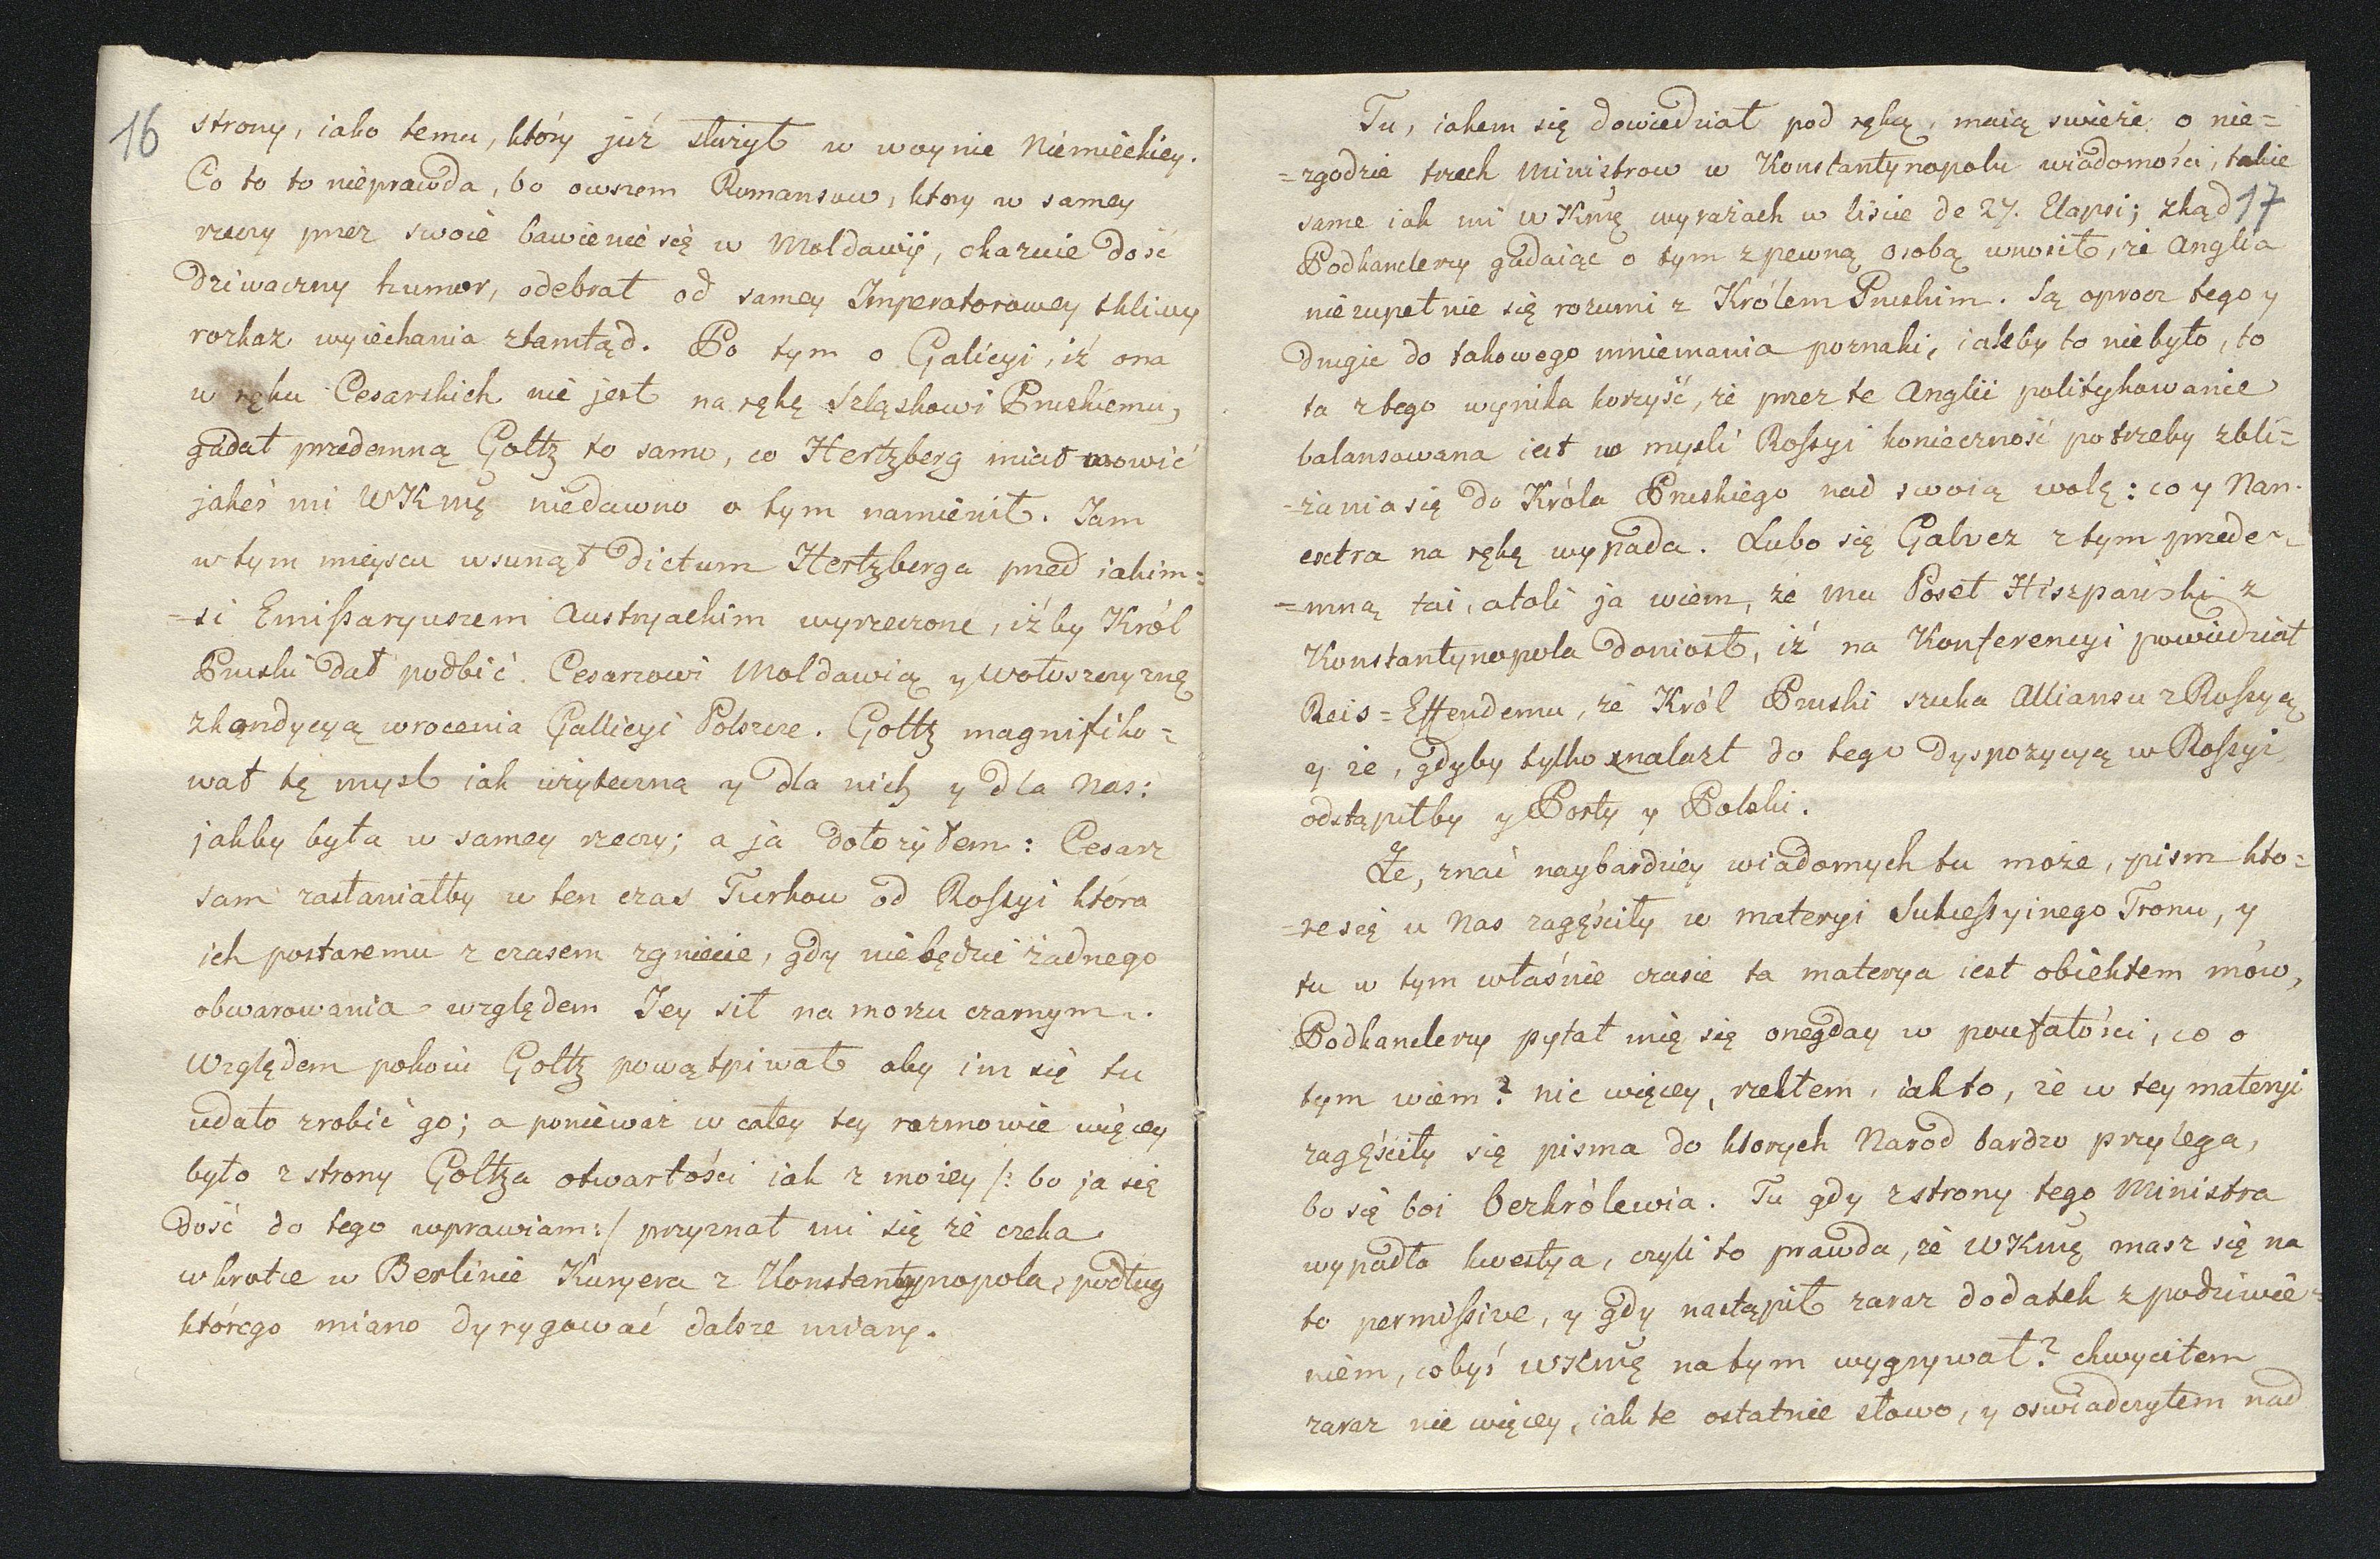 16
strony, iako temu, który już służył w woynie Niemieckiey.
Co to to nieprawda, bo owszem Romansow, ktory w samey
rzeczy przez swoie bawienie się w Moldawii, okazuie dość
dziwaczny humor, odebrał od samey Imperatorowey tkliwy
rozkaz wyiechania ztamtąd. Po tym o Galicyi, iż ona
w ręku Cesarskich nie jest na rękę Szląskowi Pruskiemu,
gadał przedemną Goltz to samo, co Hertzberg miał mowić
jakeś mi WKmę niedawno o tym namienił. Jam
w tym mieyscu wsunął dictum Hertzberga przed iakim=
=si Emissaryuszem Austryackim wyrzeczone, iżby Król
Pruski dał podbić Cesarzowi Moldawią y Wołoszczyznę
z kondycyą wrocenia Gallicyi Polszcze. Goltz magnifiko=
wał tę mysl iak użyteczną y dla nich y dla Nas:
jakby była w samey rzeczy; a ja dołożyłem: Cesarz
sam zasłaniałby w ten czas Turkow od Rossyi która
ich postaremu z czasem zgniecie, gdy nie będzie żadnego
obwarowania względem Jey sił na morzu czarnym.
Względem pokoiu Goltz powątpiwał aby im się tu
udało zrobić go; a ponieważ w całey tey rozmowie więcey
było z strony Goltza otwartości iak z moiey /: bo ja się
dość do tego wprawiam :/ przyznał mi się że czeka
wkrotce w Berlinie Kuryera z Konstantynopola, podług
którego miano dyrygować dalsze miary.
Tu, iakem się dowiedział pod ręką, maią swieże o nie=
=zgodzie trzech Ministrow w Konstantynopolu wiadomości, takie
same iak mi WKmę wyrażach w liscie de 27. Elapsi; zkąd 17
Podkanclerzy gadaiąc o tym z pewną osobą wnosił, że Anglia
niezupełnie się rozumi z Królem Pruskim. Są oprocz tego y
drugie do takowego mniemania poznaki, iakby to nie było, to
ta z tego wynika korzyść, że przez te Anglii politykowanie
balansowana iest w mysli Rossyi konieczność potrzeby zbli=
=żania się do Króla Pruskiego nad swoią wolę: co y Nam
extra na rękę wypada. Lubo się Galvez z tym przede=
=mną tai, atoli ja wiem, że mu Poseł Hiszpański z
Konstantynopola doniosł, iż na Konferencyi powiedział
Reis=Effendemu, że Król Pruski szuka Alliansu z Rossyą
y że, gdyby tylko znalazł do tego dyspozycyą w Rossyi
odstąpiłby y Porty y Polski.
Że, znać naybardziey wiadomych tu może, pism kto=
=re się u Nas zagęściły w materyi Sukcessyinego Tronu, y
tu w tym właśnie czasie ta materya iest obiektem mów,
Podkanclerzy pytał mię się onegday w poufałości, co o
tym wiem? nic więcey, rzekłem, iak to, że w tey materyi
zagęściły się pisma do ktorych Narod bardzo przylega,
bo się boi bezkrólewia. Tu gdy z strony tego Ministra
wypadła kwestya, czyli to prawda, że WKmę masz się na
to permissive, y gdy nastąpił zaraz dodatek z podziwie=
niem, cobyś WKmę na tym wygrywał? chwyciłem
zaraz nie więcey, iak te ostatnie słowo, y oswiadczyłem nad